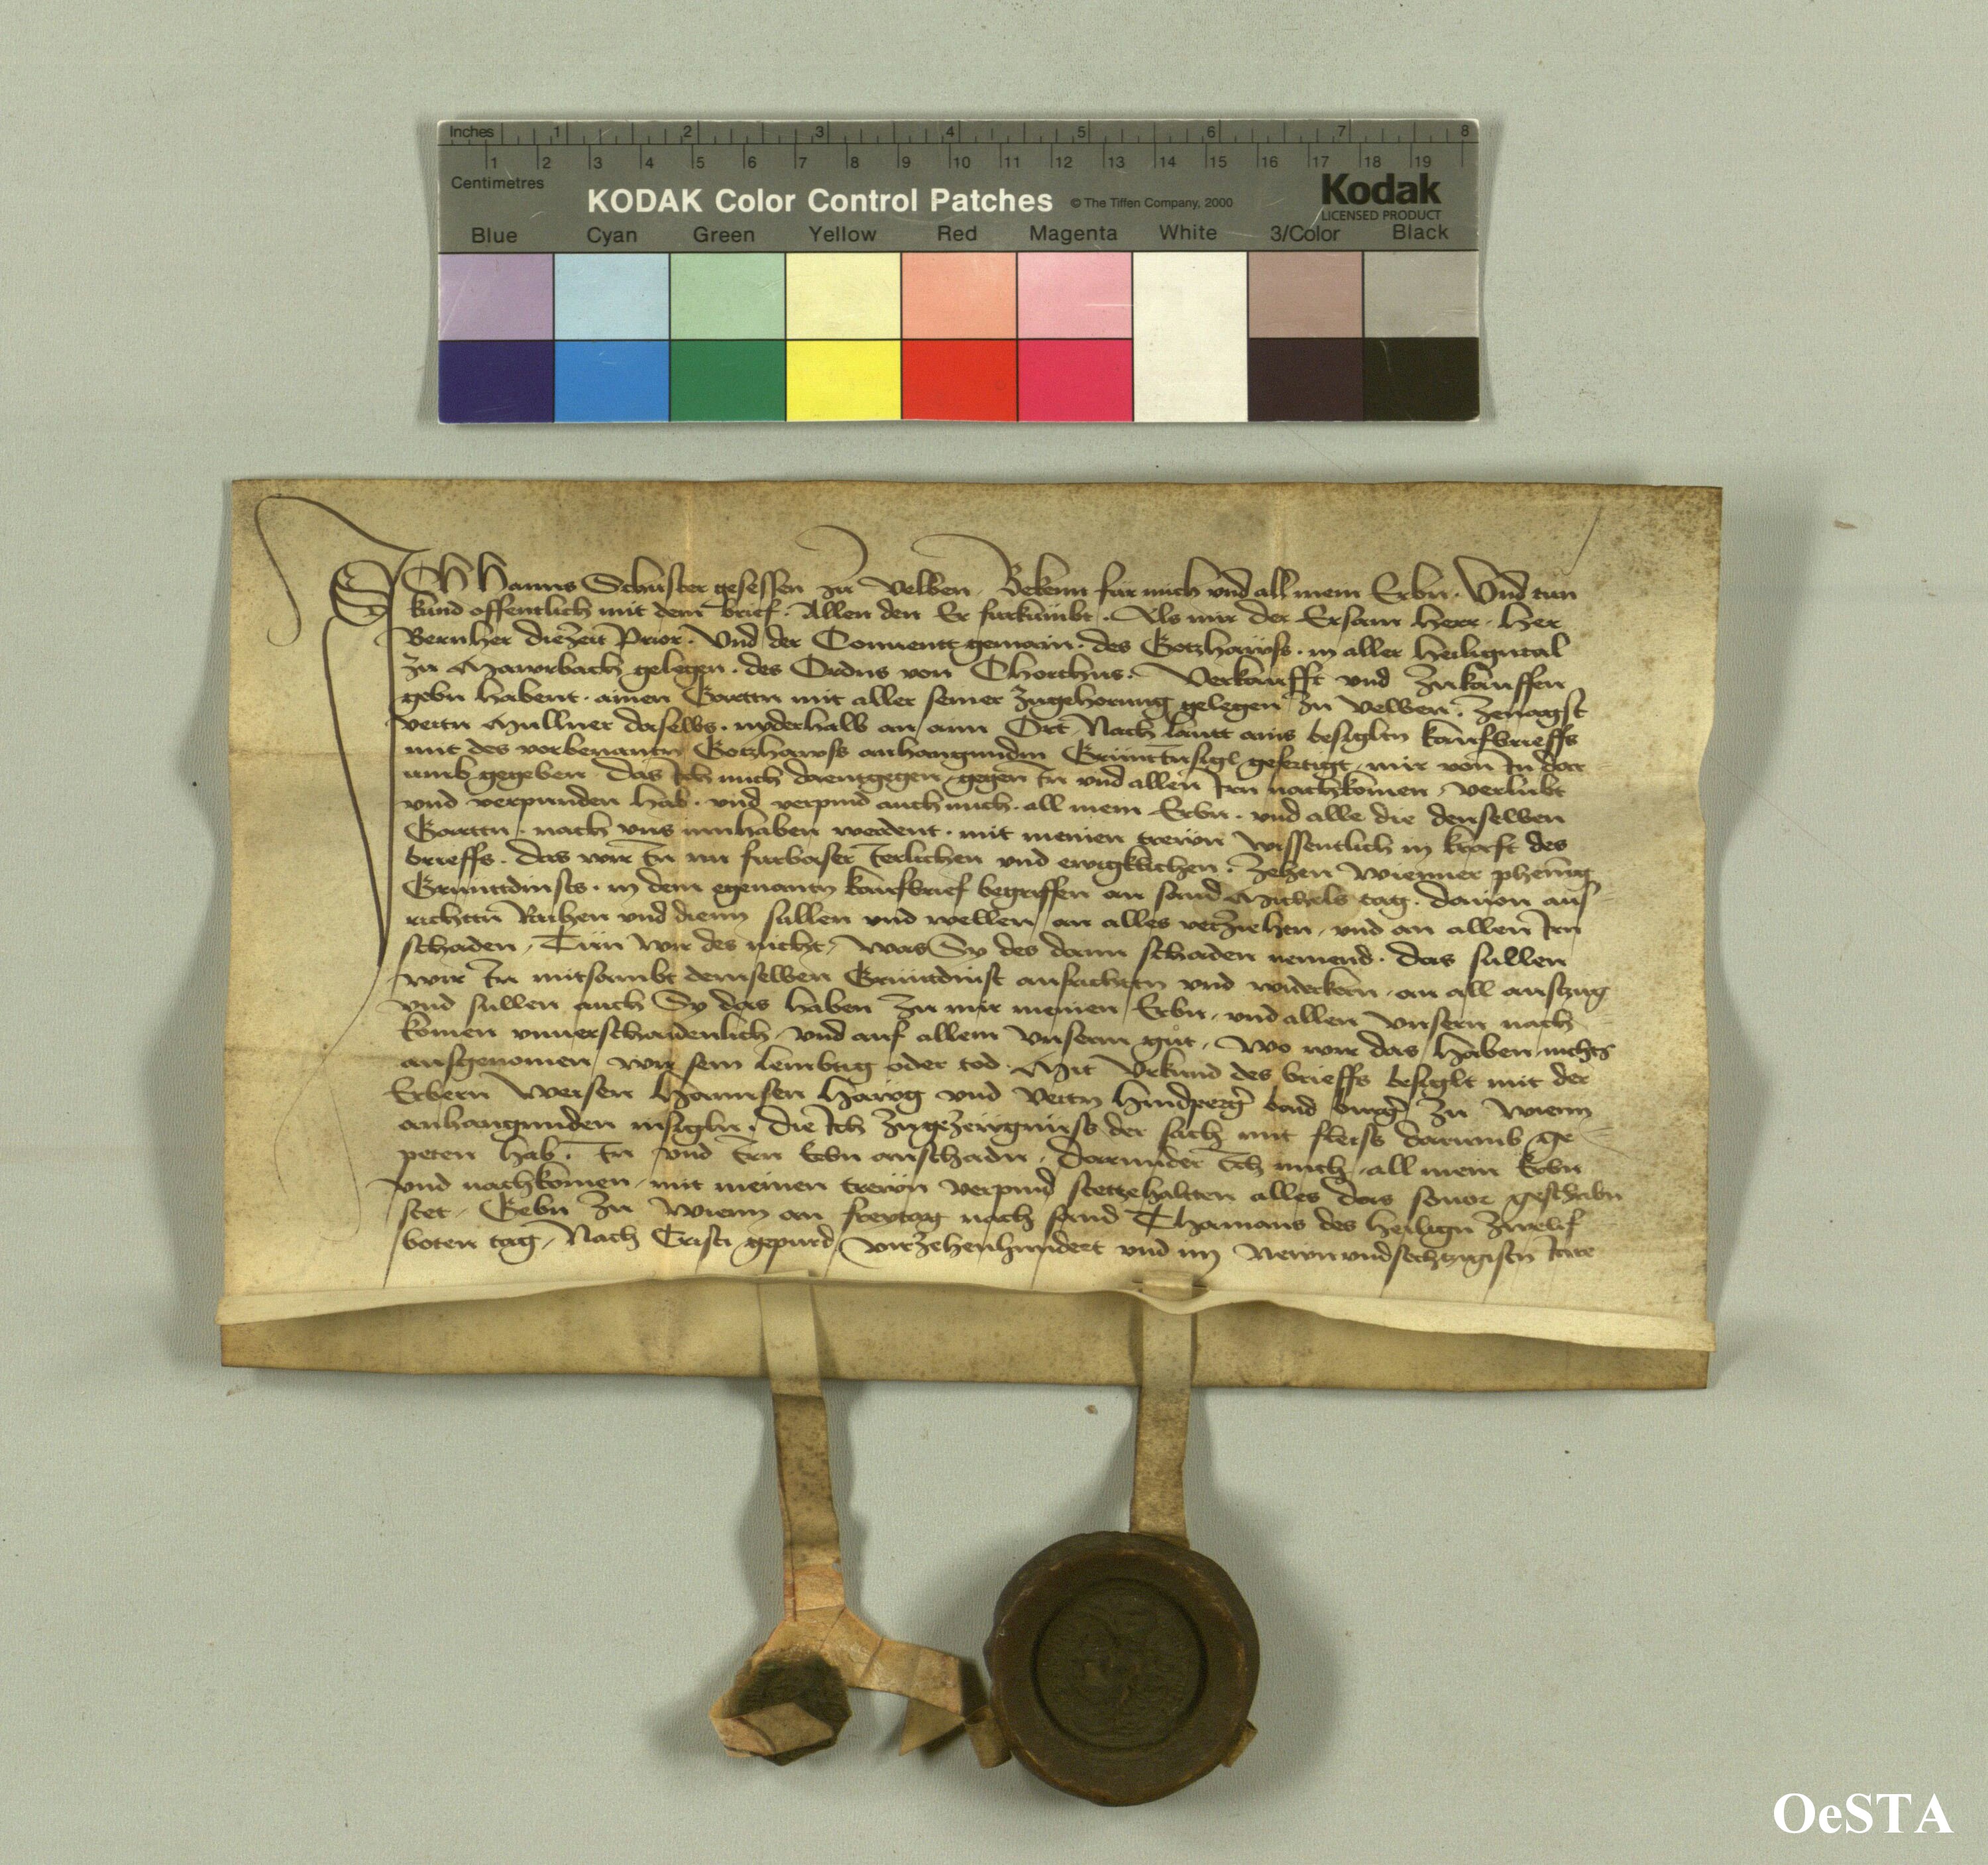 Inches 1 2 3 4 5 6 7 8
1 2 3 4 5 6 7 8 9 10 11 12 13 14 15 16 17 18 19
Centimetres
KODAK Color Control Patches © The Tiffen Company, 2000 Kodak
LICENSED PRODUCT
Blue Cyan Green Yellow Red Magenta White 3/Color Black
Ich Hanns Schuster gesessen zu Velben Bekenn fur mich vnd all mein Erbn. Vnd tun
kund offentlich mit dem brief. Allen den Er furkumbt. Als mir der Ersam Herr. Her
Bernher diezeit Prior. Vnd der Conuentt gemain. des Gotzhawss. in aller heiligntal
zu Mawrbach gelegen. des Ordns von Chorthus. Verkaufft vnd zukauffen
gebn habent. ainen Gartn mit aller seiner zugehorung gelegen zu Velben. zenagst
Veitn Mullner daselbs. nyderhalb an aim Ort Nach lautt ains besigltn kaufbrieffs
mit des vorbenantn Gotzhawss anhangundm Grunttnsigl gefertigt. mir von In dar
umb gegeben. das Ich mich daentgegen gegen In vnd allen Irn nachkomen verlubt
vnd verpunden hab. vnd verpind auch mich. all mein Erbn. vnd alle die denselben
Gartn. nach vns innhaben werdent. mit meinen trewn wissentlich in kraft des
brieffs. das wir In nu furbaser Ierlichen vnd ewigklichen. zehen wienner phening
Grunttdinsts. in dem egenantn kaufbrief begriffen an sand Michels tag. dauon aus
richttn Raihen vnd dienn sullen vnd wellen an alles verziehen. vnd an allen Irn
schaden. Tun wir des nicht. was Sy des dann schaden nemend. das sullen
wir In mitsambt demselben Grunttdinst ausrichten vnd widerkern. an all auszug
vnd sullen auch Sy das haben zu mir meinen Erbn. vnd allen vnsern nach
komen vnuerschaidenlich. vnd auf allem vnserm gut. wo wir das haben nichts
ausgenomen wir sein lembtig oder tod. Mit Vrkund des brieffs besiglt mit der
Erbern weisen Hannsen Hawg vnd Veitn Hindperg baid burger zu wienn
anhangunden insigln. die Ich zugezewgnuss der sach mit fleiss darumb ge
peten hab. In vnd Irn Erbn anschadn. Darunder Ich mich. all mein Erbn
vnd nachkomen. mit meinen trewn verpind stettzehaltten alles das seuor geschribn
stet. Gebn zu wienn an freytag nach sand Thomans des heilign zwelif
boten tag. Nach Cristi gepurd virzehenhundert vnd im Newnvndsechtzigistn Iare
OeSTA